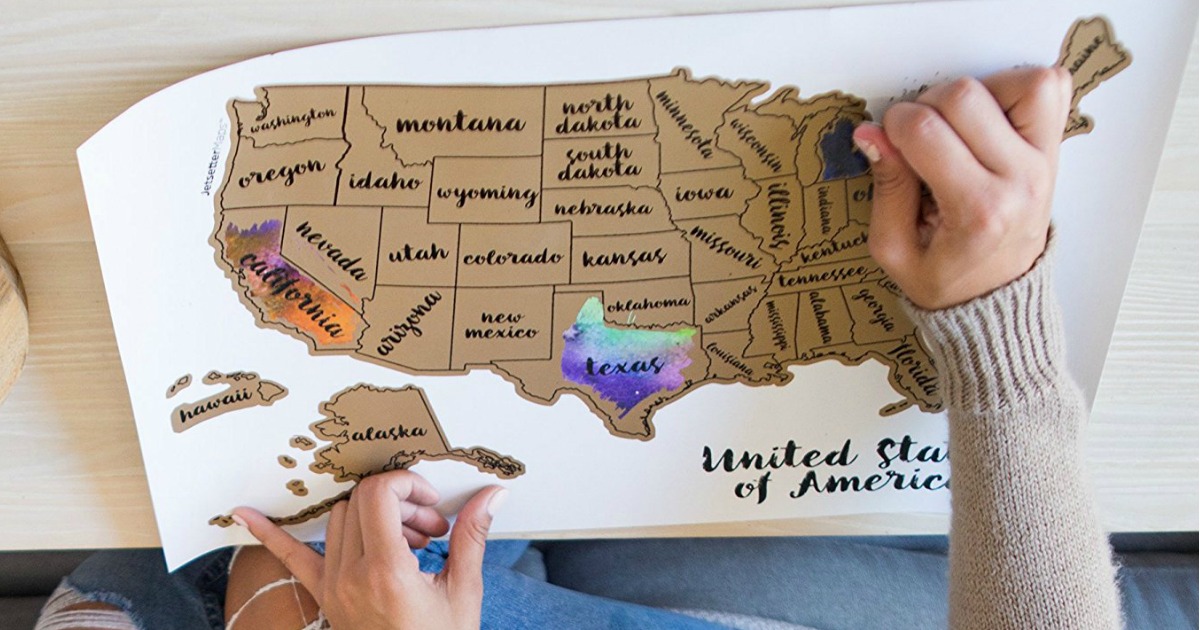 washington
montana
north
dakota
minnesota
JetsetterMaps
oregon
idaho
wyoming
south
dakota
wisconsin
iowa
nebraska
illinois
indiana
california
nevada
utah
colorado
kansas
missouri
tennessee
arizona
new
mexico
oklahoma
arkansas
mississippi
alabama
georgia
texas
louisiana
florida
hawaii
alaska
United
of